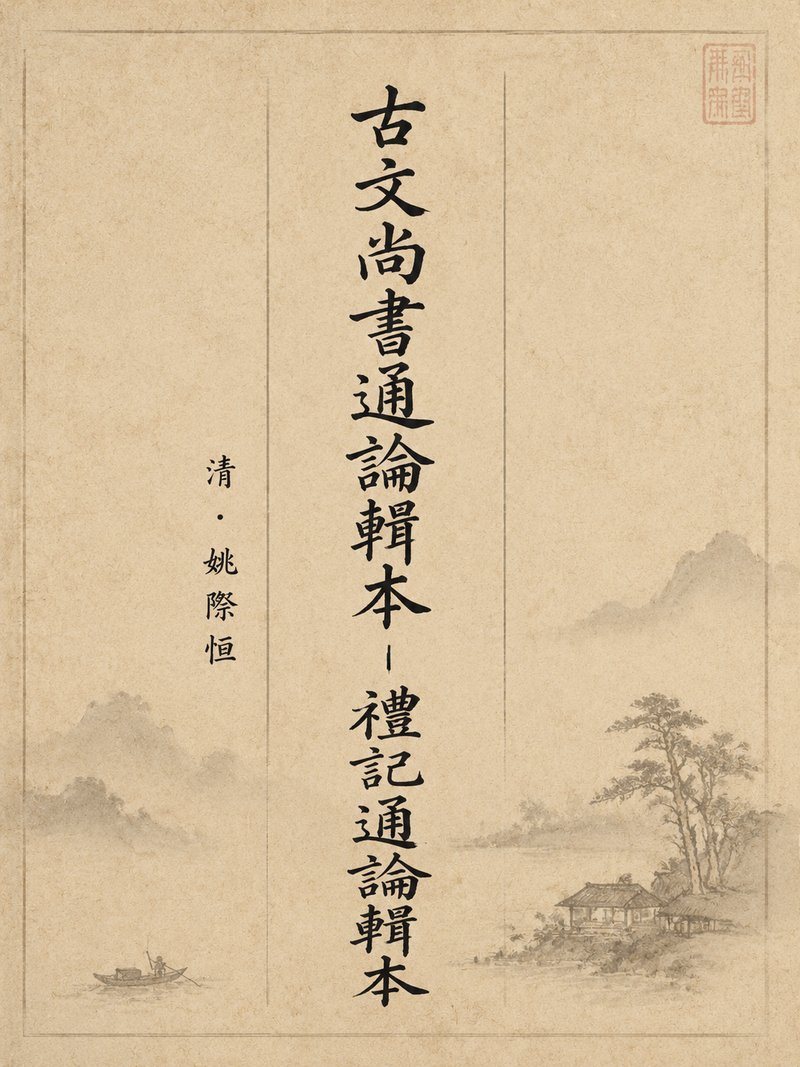 古文尚書通論輯本－禮記通論輯本
清・姚際恒